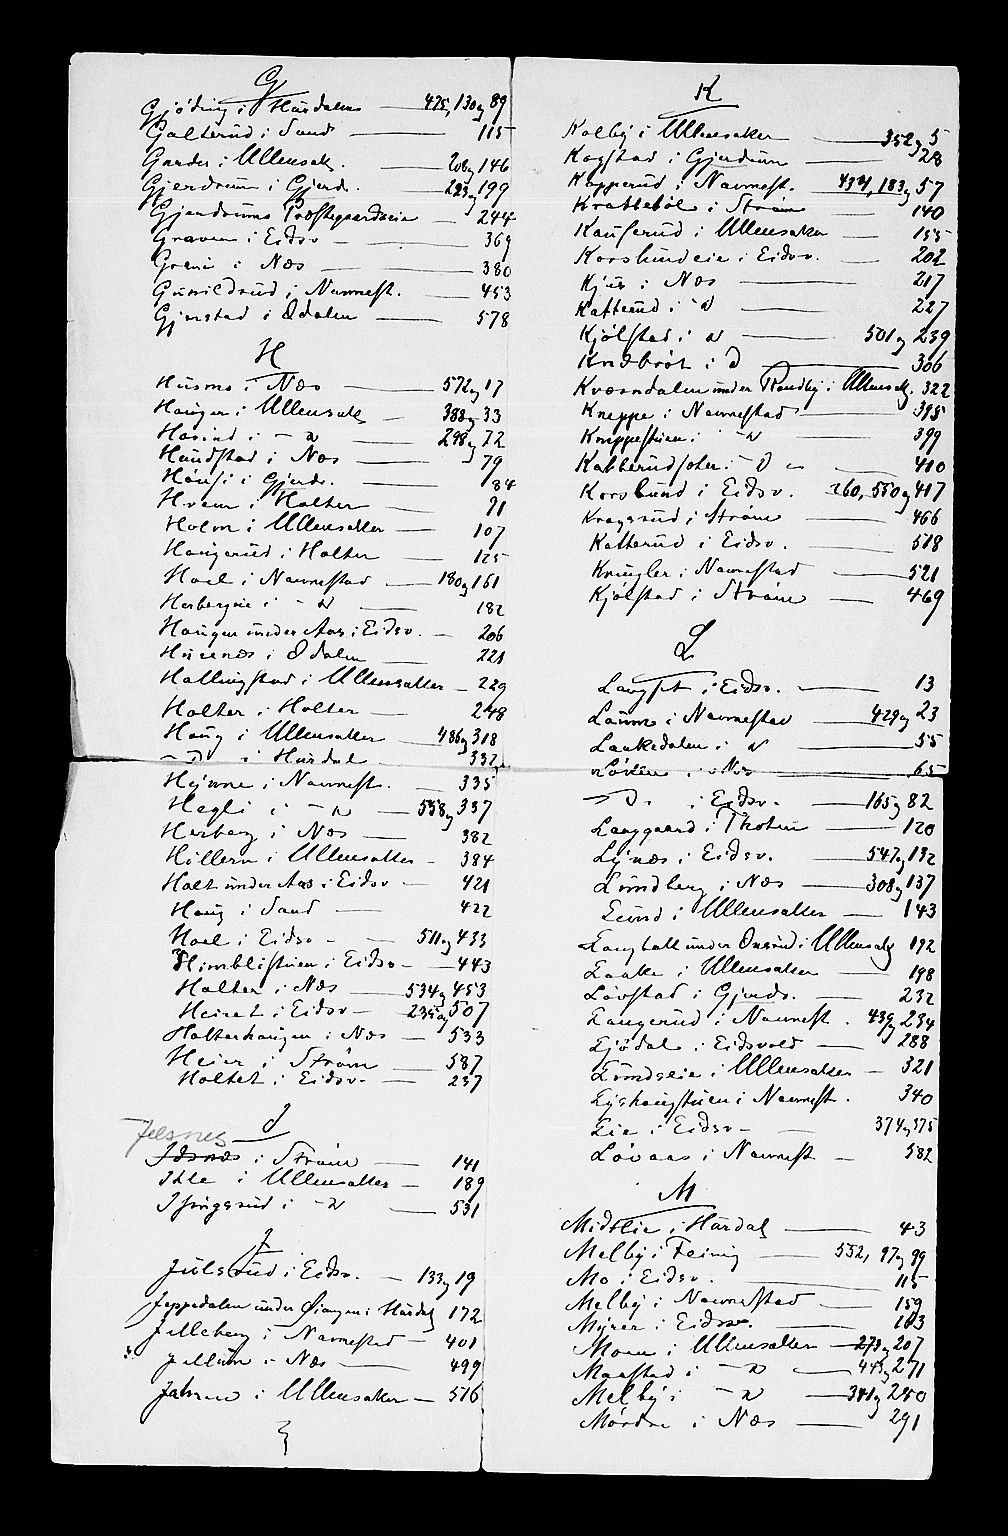 G
Gjöding i Hurdalen 475, 130 og 89
Galterud i Sand 115
Garder i Ullensak. 206 og 146
Gjerdrum i Gjerd. 223 og 199
Gjerdrums Præstegaardseie 244
Graven i Eidsv 369
Greni i Næs 380
Gunildrud i Nannest. 453
Gjerstad i Odalen 578
H
Husmo i Næs 572 og 17
Hauger i Ullensak 388 og 33
Hovind i - " 298 og 72
Haudstad i Næs 79
Hausi i Gjerd. 84
Hvam i Holter 91
Holm i Ullensaker 107
Haugerud i Holter 125
Hoel i Nannestad 180 og 161
Herbergeie i - " 182
Haugen under Aas i Eidsv. 206
Husenæs i Odalen 221
Hallingstad i Ullensaker 229
Holter i Holter 248
Haug i Ullensaker 486 og 318
- D - i Hurdal 332
Heÿnne i Nannest. 335
Hegli i - " 558 og 337
Herberg i Næs 382
Hillern i Ullensaker 384
Holt under Aas i Eidsv 421
Haug i Sand 422
Hoel i Eidsv 511 og 433
Himblistuen i Eidsv 443
Holter i Næs 534 og 453
Heiret i Eidsv 235 og 507
Holterhaugen i Næs 533
Heier i Strøm 587
Holtet i Eidsv 237
I
Jdsnes
Idsnæs i Strøm 141
Ihle i Ullensaker 189
Isingrud i - " 531
J
Julsrud i Eidsv. 133 og 19
Jeppedalen under Øiangen i Hurdal 172
Jelleberg i Nannestad 401
Jellum i Næs 499
Jahren i Ullensaker 516
K
Kolbÿ i Ullensaker 352 og 5
Kogstad i Gjerdrum 28
Kopperud i Nannest. 434, 183 og 57
Kratteböl i Strøm 140
Kauserud i Ullensaker 155
Korslundeie i Eidsv. 202
Kjus i Næs 217
Katterud i " 227
Kjölstad i " 501 og 239
Kndbröt i D 306
Kværndalen under Randby i Ullensak. 322
Kneppe i Nannestad 395
Kneppestuen i - " 399
Kabberudsoter i - D - 410
Korslund i Eidsv. 260, 550 og 417
Kragsrud i Strøm 466
Katterud i Eidsv. 518
Krugler i Nannestad 521
Kjölstad i Strøm 469
L
Langset i Eidsv. 13
Laune i Nannestad 429 og 23
Laakedalen i " 55
Löken i Næs 65
- D - i Eidsv. 165 og 82
Langgaard i Thoten 120
Lÿnæs i Eidsv. 547 og 132
Lundberg i Næs 308 og 137
Lund i Ullensaker 143
Langbakk under Onsrud i Ullensak 192
Laake i Ullensaker 198
Lövstad i Gjerd. 232
Langerud i Nannest. 439 og 234
Ljödal i Eidsvold 288
Lundseie i Ullensaker 321
Lyshaugstuen i Nannest. 340
Lie i Eidsv 374 og 375
Lövaas i Nannest 582
M
Midtlie i Hurdal 43
Melbÿ i Feiring 552, 97 og 99
Mo i Eidsv. 115
Melbÿ i Nannestad 159
Mÿrer i Eidsv. 163
Moen i Ullensaker 273 og 207
Mogstad i - " 443 og 271
Melbÿ i - " 341 og 280
Mördre i Næs 291